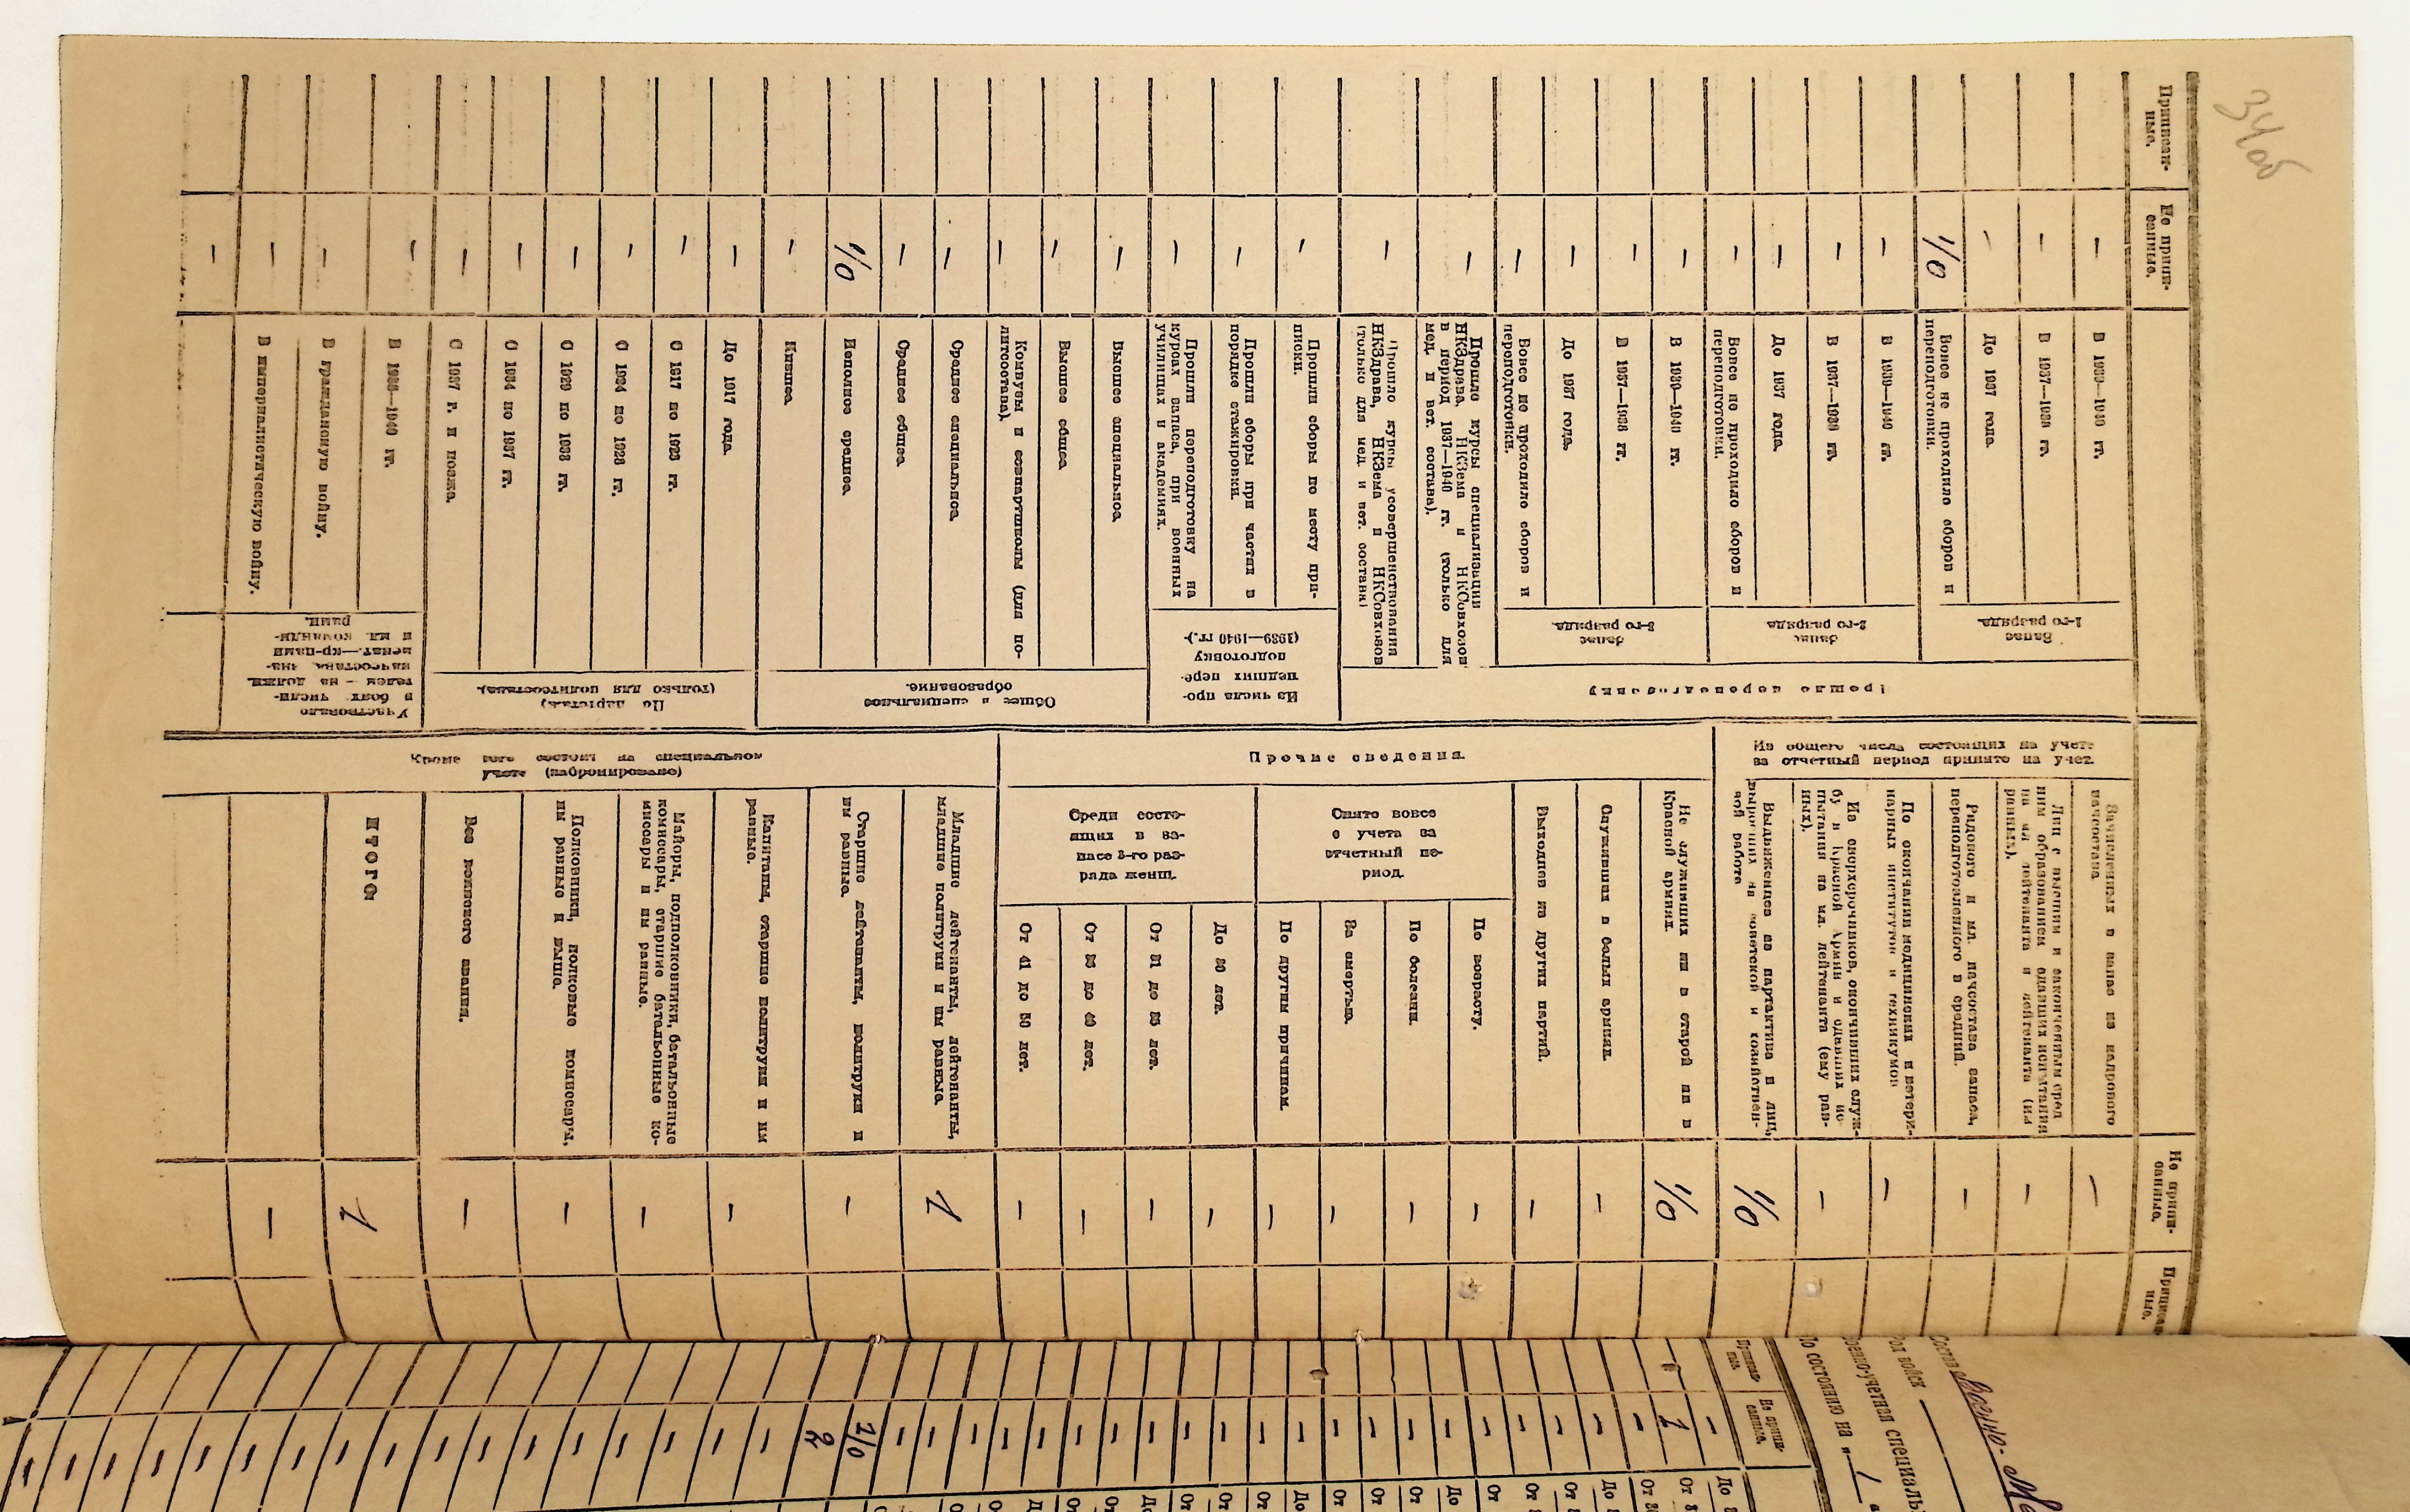 34об
Приписан-
ные.
Не припи-
санные.
Прошло переподготовку
Запас
1-го разряда.
В 1939—1940 гг.
—
В 1937—1938 гг.
—
До 1937 года.
—
Вовсе не проходило сборов и
переподготовки.
1/0
Запас
2-го разряда.
В 1939—1940 гг.
—
В 1937—1938 гг.
—
До 1937 года.
—
Вовсе не проходило сборов и
переподготовки.
—
Запас
3-го разряда.
В 1939—1940 гг.
—
В 1937—1938 гг.
—
До 1937 года.
—
Вовсе не проходило сборов и
переподготовки.
—
Прошло курсы специализации
НКЗдрава, НКЗема и НКСовхозов
в период 1937—1940 гг. (только для
мед. и вет. состава).
—
Прошло курсы усовершенствования
НКЗдрава, НКЗема и НКСовхозов
(только для мед. и вет. состава)
—
Из числа про-
шедших пере-
подготовку
(1939—1940 гг.).
Прошли сборы по месту при-
писки.
—
Прошли сборы при частях в
порядке стажировки.
—
Прошли переподготовку на
курсах запаса, при военных
училищах и академиях.
—
Общее и специальное
образование.
Высшее специальное.
—
Высшее общее.
—
Комвузы и совпартшколы (для по-
литсостава).
—
Среднее специальное.
—
Среднее общее.
—
Неполное среднее.
1/0
Низшее.
—
По партстажу
(только для политсостава).
До 1917 года.
—
С 1917 по 1923 гг.
—
С 1924 по 1928 гг.
—
С 1929 по 1933 гг.
—
С 1934 по 1937 гг.
—
С 1937 г. и позже.
—
Участвовало
в боях числи-
телем — на должн.
начсостава, зна-
менат.—кр-цами
и мл. команди-
рами.
В 1938—1940 гг.
—
В гражданскую войну.
—
В империалистическую войну.
—
—
Не припи-
санные.
Приписан-
ные.
Из общего числа состоящих на учете
за отчетный период принято на учет.
Зачисленных в запас из кадрового
начсостава
—
Лиц с высшим и законченным сред-
ним образованием сдавших испытания
на мл. лейтенанта и лейтенанта (им
равных).
—
Рядового и мл. начсостава запаса,
переподготовленного в средний.
—
По окончании медицинских и ветери-
нарных институтов и техникумов
—
Из сверхсрочников, окончивших служ-
бу в Красной Армии и сдавших ис-
пытания на мл. лейтенанта (ему рав-
ных).
—
Выдвиженцев из партактива и лиц,
выросших на советской и хозяйствен-
ной работе
1/0
Прочие сведения.
Не служивших ни в старой ни в
Красной армиях.
1/0
Служивших в белых армиях.
—
Выходцев из других партий.
—
Снято вовсе
с учета за
отчетный пе-
риод.
По возрасту.
—
По болезни.
—
За смертью.
—
По другим причинам.
—
Среди состо-
ящих в за-
пасе 3-го раз-
ряда женщ.
До 30 лет.
—
От 31 до 35 лет.
—
От 36 до 40 лет.
—
От 41 до 50 лет.
—
Кроме того состоит на специальном
учете (забронировано)
Младшие лейтенанты, лейтенанты,
младшие политруки и им равные.
1
Старшие лейтенанты, политруки и
им равные.
—
Капитаны, старшие политруки и им
равные.
—
Майоры, подполковники, батальонные
комиссары, старшие батальонные ко-
миссары и им равные.
—
Полковники, полковые комиссары,
им равные и выше.
—
Без воинского звания.
—
ИТОГО
1
—
Состав Военно-
Род войск —
Военно-учетная специаль
По состоянию на „ 1
Приписан-
ные.
Не припи-
санные.
До
—
От
1
От
—
2/0
2